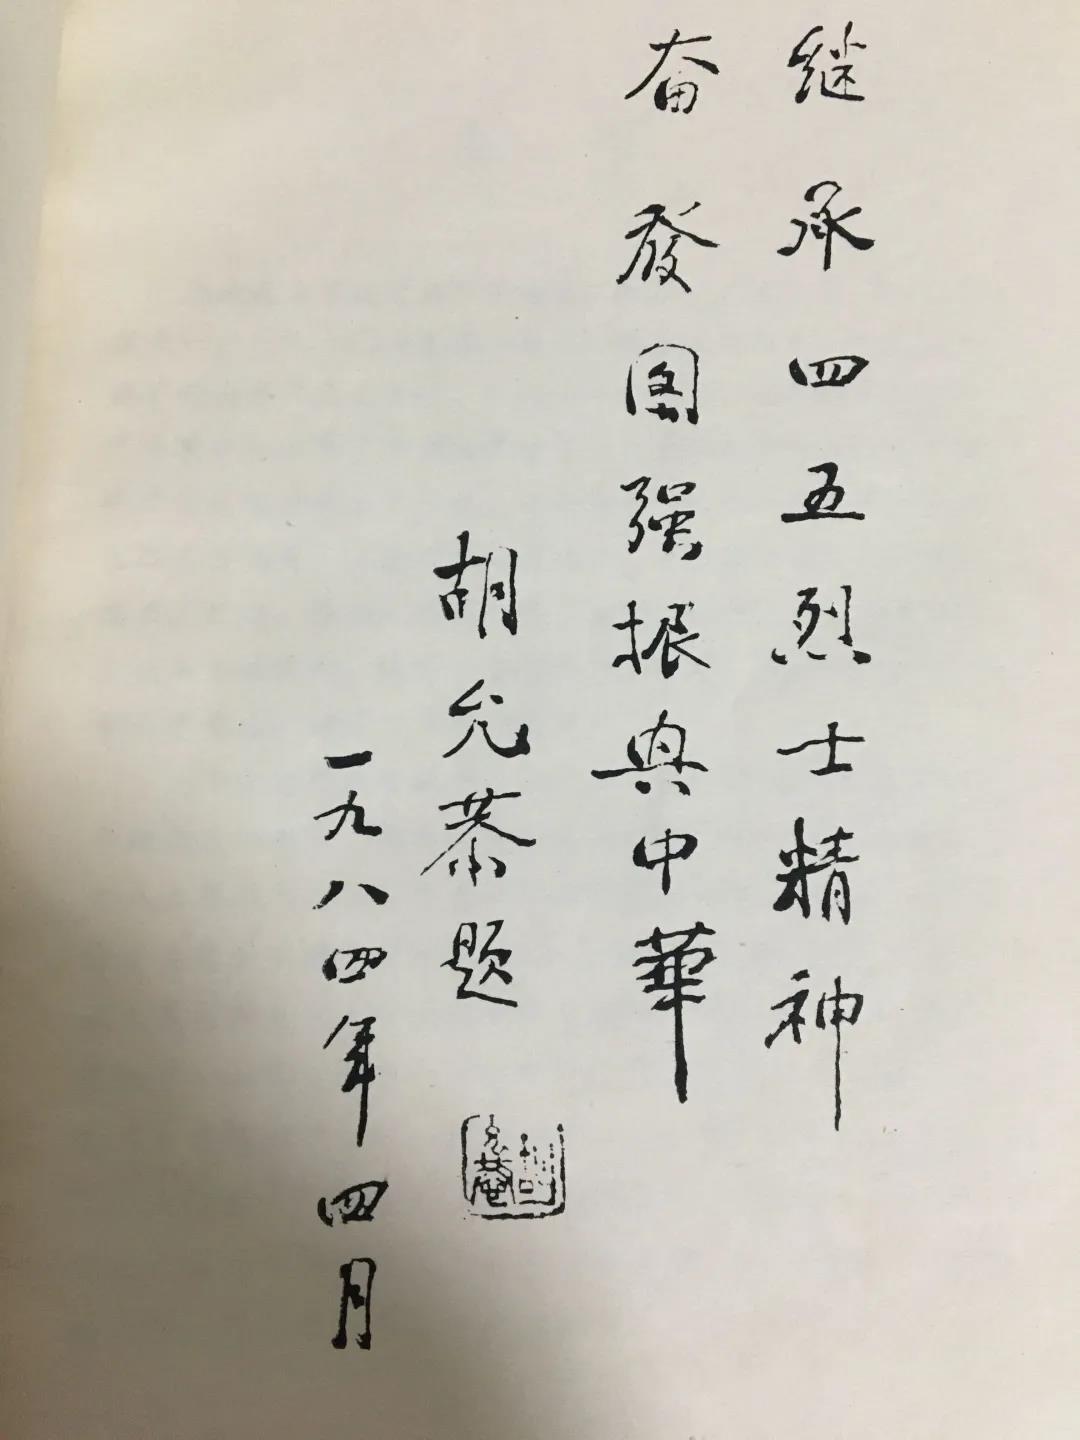 继承四五烈士精神
奋發图强振兴中華
胡允恭题
一九八四年四月